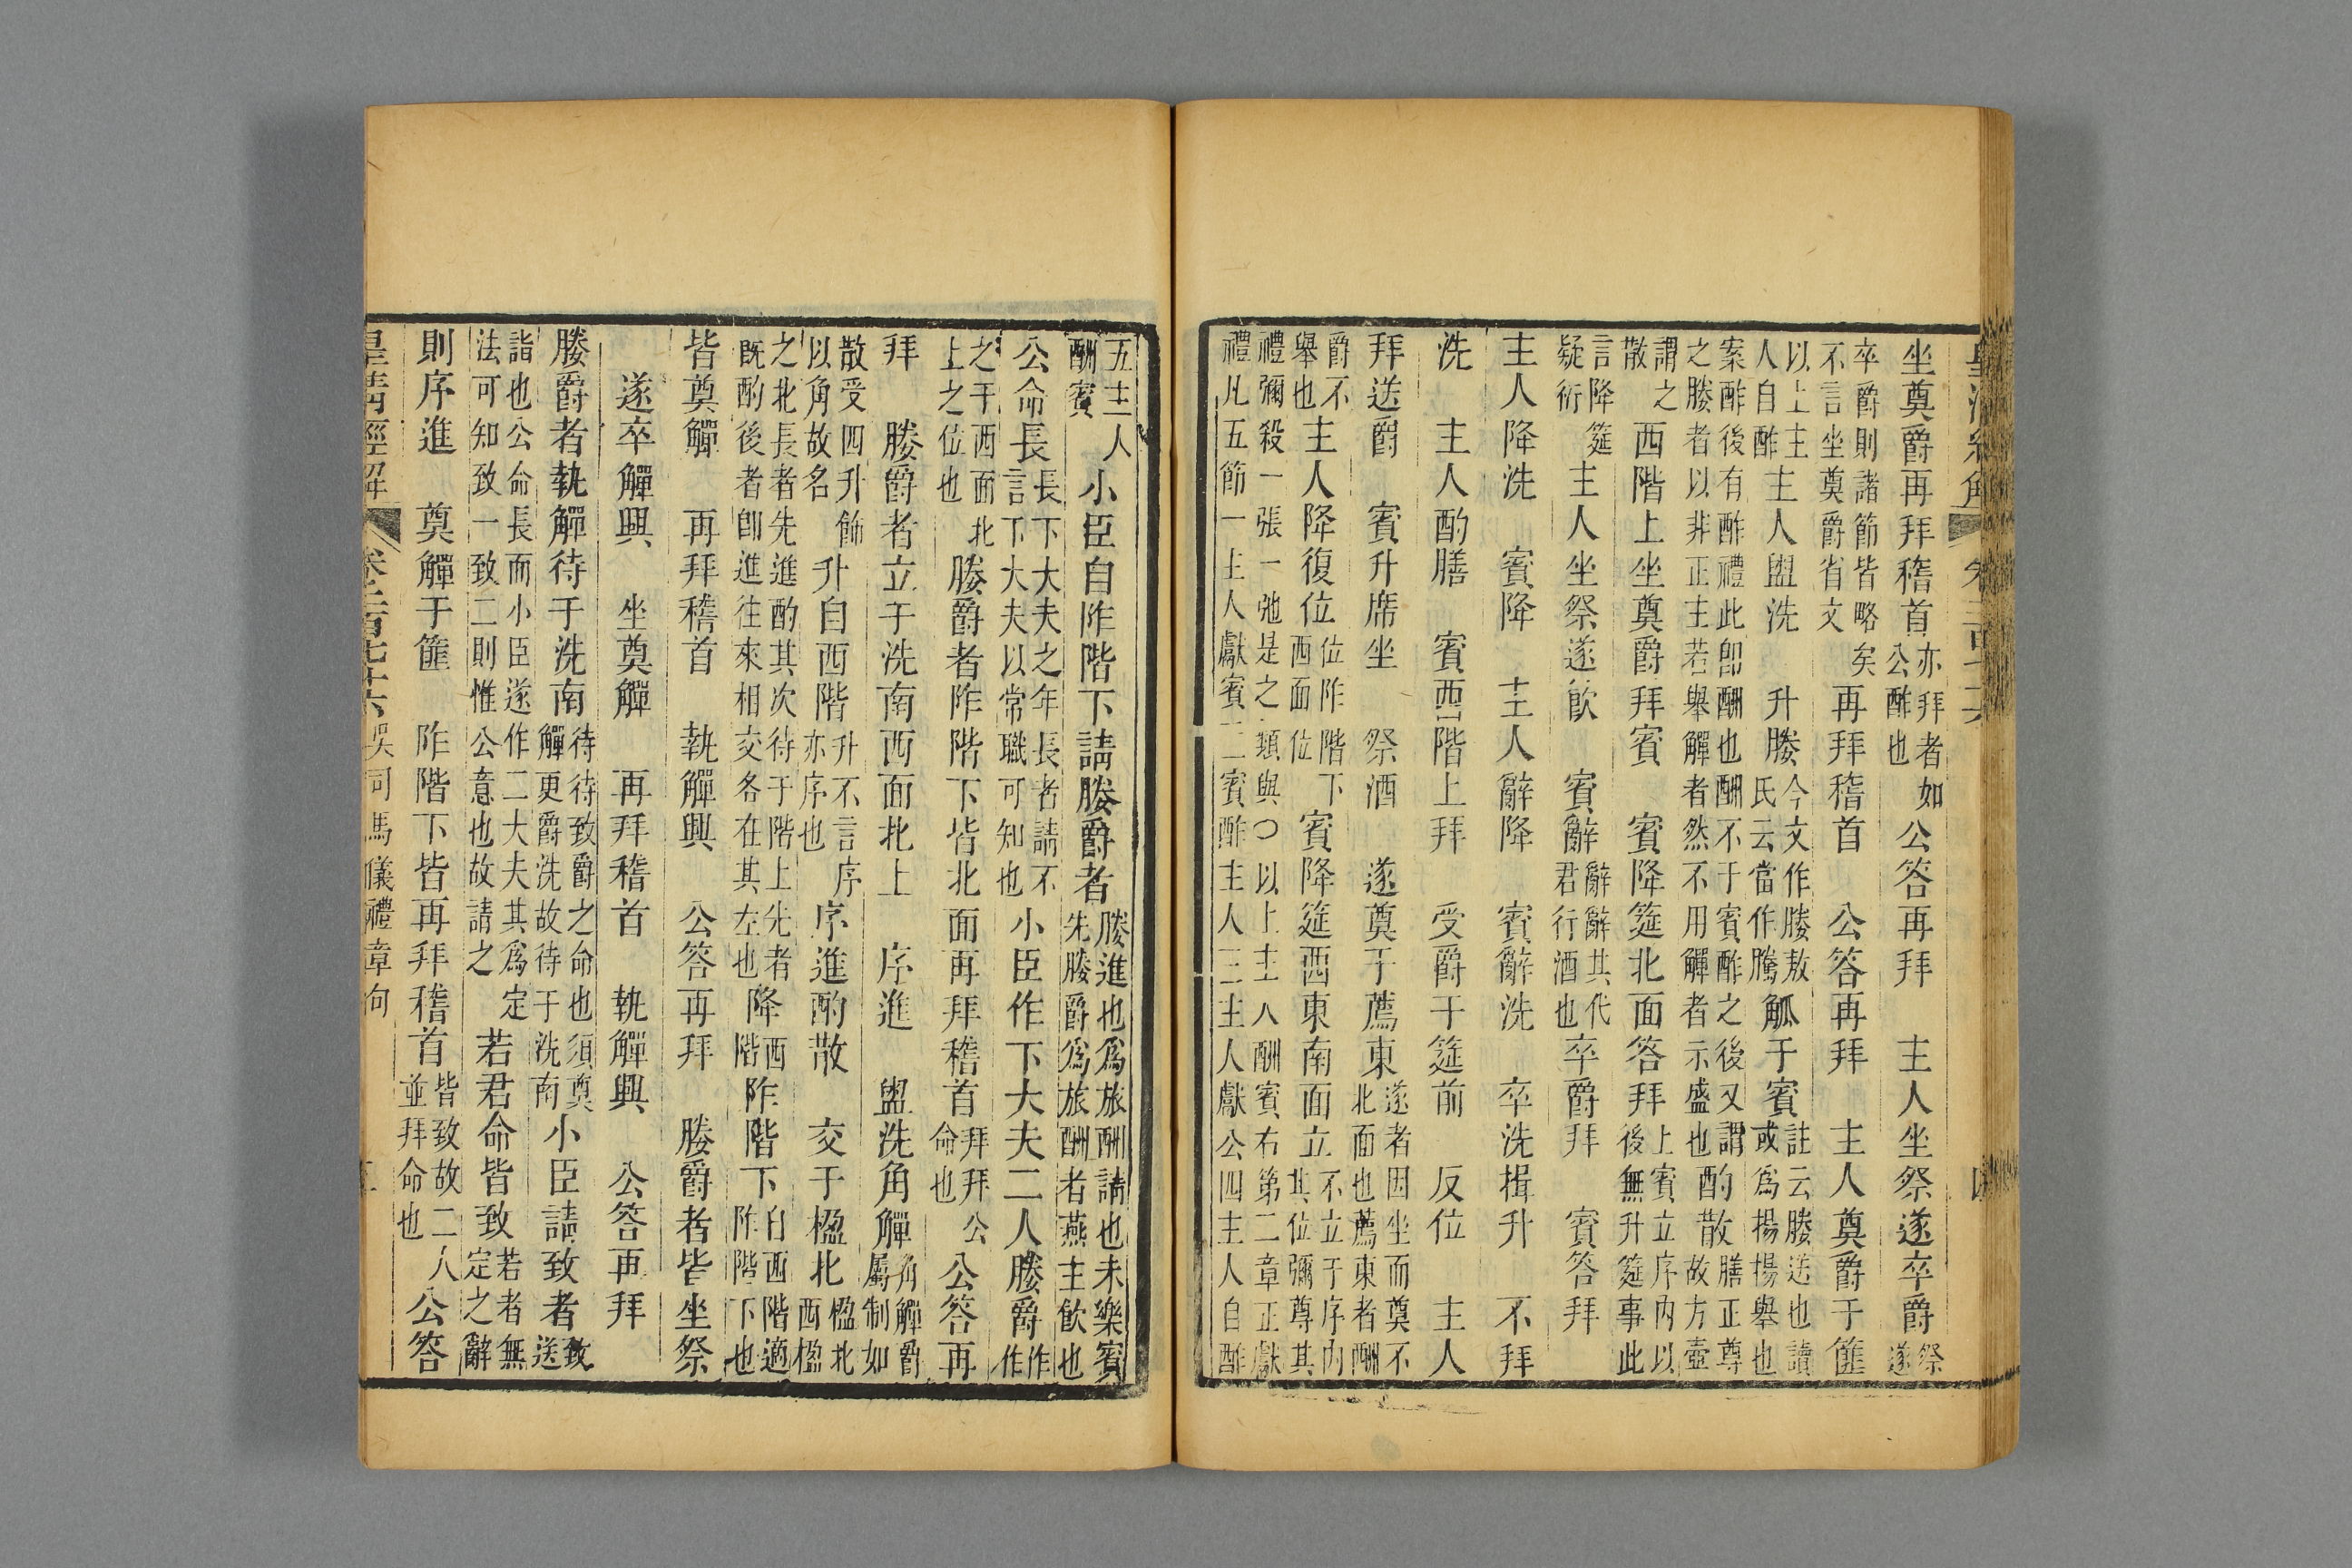 坐奠爵再拜稽首亦拜者如公酢也公答再拜　主人坐祭遂卒爵祭遂
卒爵則諸節皆略矣不言坐奠爵省文再拜稽首　公答再拜　主人奠爵于篚
以上主人自酢主人盥洗　升媵今文作媵敖氏云當作騰觚于賓註云媵送也讀或爲揚揚舉也
案酢後有酢禮此卽酬也酬不于賓酢之後又謂之媵者以非正主若舉觶者然不用觶者示盛也酌散膳正尊故方壺
謂之散西階上坐奠爵拜賓　賓降筵北面答拜上賓立序內以後無升筵事此
言降筵疑衍主人坐祭遂飮　賓辭辭辭其代君行酒也卒爵拜　賓答拜
主人降洗　賓降　主人辭降　賓辭洗　卒洗揖升　不拜
洗　主人酌膳　賓西階上拜　受爵于筵前　反位　主人
拜送爵　賓升席坐　祭酒　遂奠于薦東遂者因坐而奠不北面也薦東者酬
爵不舉也主人降復位位阼階下西面位賓降筵西東南面立不立于序內其位彌尊其
禮彌殺一張一弛是之類與〇以上主人酬賓右第二章正獻禮凡五節一主人獻賓二賓酢主人三主人獻公四主人自酢
五主人酬賓　小臣自阼階下請媵爵者媵進也爲旅酬請也未樂賓先媵爵爲旅酬者燕主飮也
公命長長下大夫之年長者請不言下大夫以常職可知也小臣作下大夫二人媵爵作作
之于西面北上之位也媵爵者阼階下皆北面再拜稽首拜拜公命也公答再
拜　媵爵者立于洗南西面北上　序進　盥洗角觶角觶爵屬制如
散受四升飾以角故名升自西階升不言序亦序也序進酌散　交于楹北楹北西楹
之北長者先進酌其次待于階上先者既酌後者卽進往來相交各在其左也降西階阼階下自西階適阼階下也
皆奠觶　再拜稽首　執觶興　公答再拜　媵爵者皆坐祭
遂卒觶興　坐奠觶　再拜稽首　執觶興　公答再拜
媵爵者執觶待于洗南待待致爵之命也須奠觶更爵洗故待于洗南小臣請致者致送
詣也公命長而小臣遂作二大夫其爲定法可知致一致二則惟公意也故請之若君命皆致若者無定之辭
則序進　奠觶于篚　阼階下皆再拜稽首皆致故二人並拜命也公答
皇淸經解　卷二百七十六　吳司馬儀禮章句